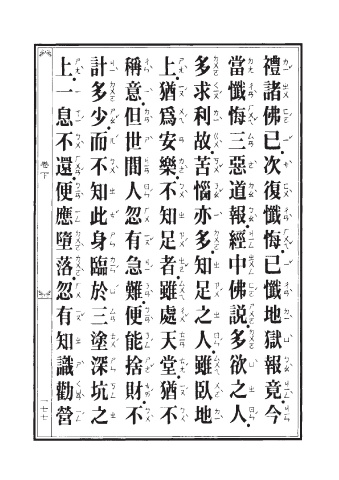 禮諸佛已。次復懺悔已懺地獄報竟。今
當懺悔三惡道報。經中佛說。多欲之人。
多求利故。苦惱亦多。知足之人。雖臥地
上。猶為安樂。不知足者。雖處天堂。猶不
稱意。但世間人忽有急難。便能捨財。不
計多少。而不知此身臨於三塗深坑之
上。一息不還。便應墮落。忽有知識勸營
卷下
一七七